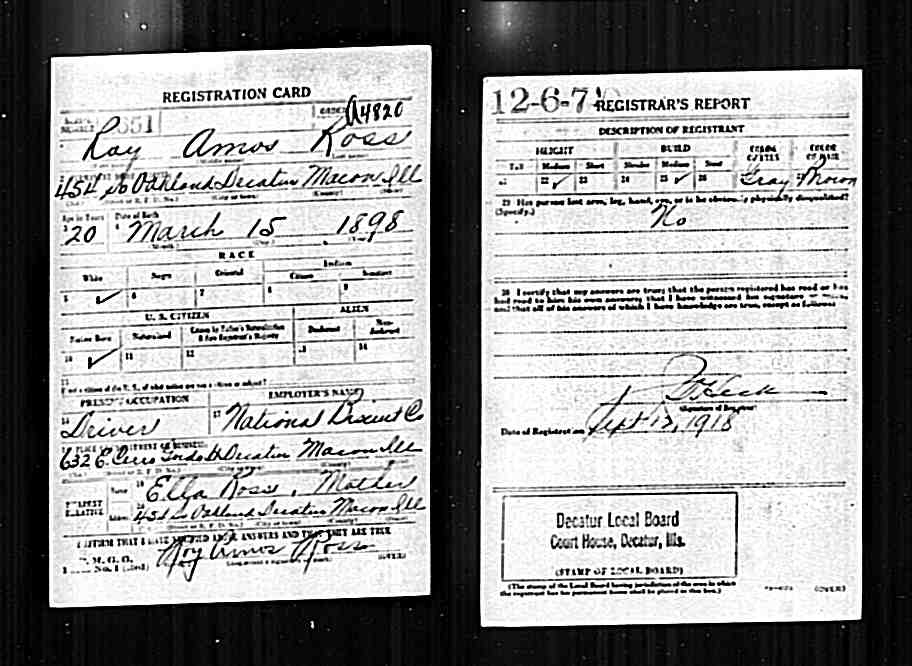 REGISTRATION CARD
SERIAL NUMBER 651 ORDER NUMBER A4820
Ray Amos Ross
(First name) (Middle name) (Last name)
2 PERMANENT HOME ADDRESS
454 So Oakland Decatur Macon Ill
(No.) (Street or R. F. D. No.) (City or town) (County) (State)
Age in Years Date of Birth
3 20 4 March 15 1898
(Month.) (Day.) (Year.)
RACE
White Negro Oriental Indian
Citizen Noncitizen
5 ✓ 6 7 8 9
U. S. CITIZEN ALIEN
Native Born Naturalized Citizen by Father's Naturalization Before Registrant's Majority Declarant Non-declarant
10 ✓ 11 12 13 14
15
If not a citizen of the U. S., of what nation are you a citizen or subject?
PRESENT OCCUPATION EMPLOYER'S NAME
16 Driver 17 National Biscuit Co
PLACE OF EMPLOYMENT OR BUSINESS
632 E. Cerro Gordo St Decatur Macon Ill
(No.) (Street or R. F. D. No.) (City or town) (County) (State)
NEAREST RELATIVE Name 19 Ella Ross, Mother
Address 20 454 So Oakland Decatur Macon Ill
(No.) (Street or R. F. D. No.) (City or town) (County) (State)
I AFFIRM THAT I HAVE VERIFIED ABOVE ANSWERS AND THAT THEY ARE TRUE
P. M. G. O.
Form No. 1 (Red) Roy Amos Ross
(Registrant's signature or mark) (OVER)
12-6-7 REGISTRAR'S REPORT
DESCRIPTION OF REGISTRANT
HEIGHT BUILD COLOR OF EYES COLOR OF HAIR
Tall Medium Short Slender Medium Stout
21 22 ✓ 23 24 25 ✓ 26 Gray Brown
29 Has person lost arm, leg, hand, eye, or is he obviously physically disqualified?
(Specify.) No
30 I certify that my answers are true; that the person registered has read or has
had read to him his own answers; that I have witnessed his signature or mark,
and that all of his answers of which I have knowledge are true, except as follows:
Heck
(Signature of Registrar)
Date of Registration Sept 12, 1918
Decatur Local Board
Court House, Decatur, Ills.
(STAMP OF LOCAL BOARD)
(The stamp of the Local Board having jurisdiction of the area in which
the registrant has his permanent home shall be placed in this box.)
(OVER)